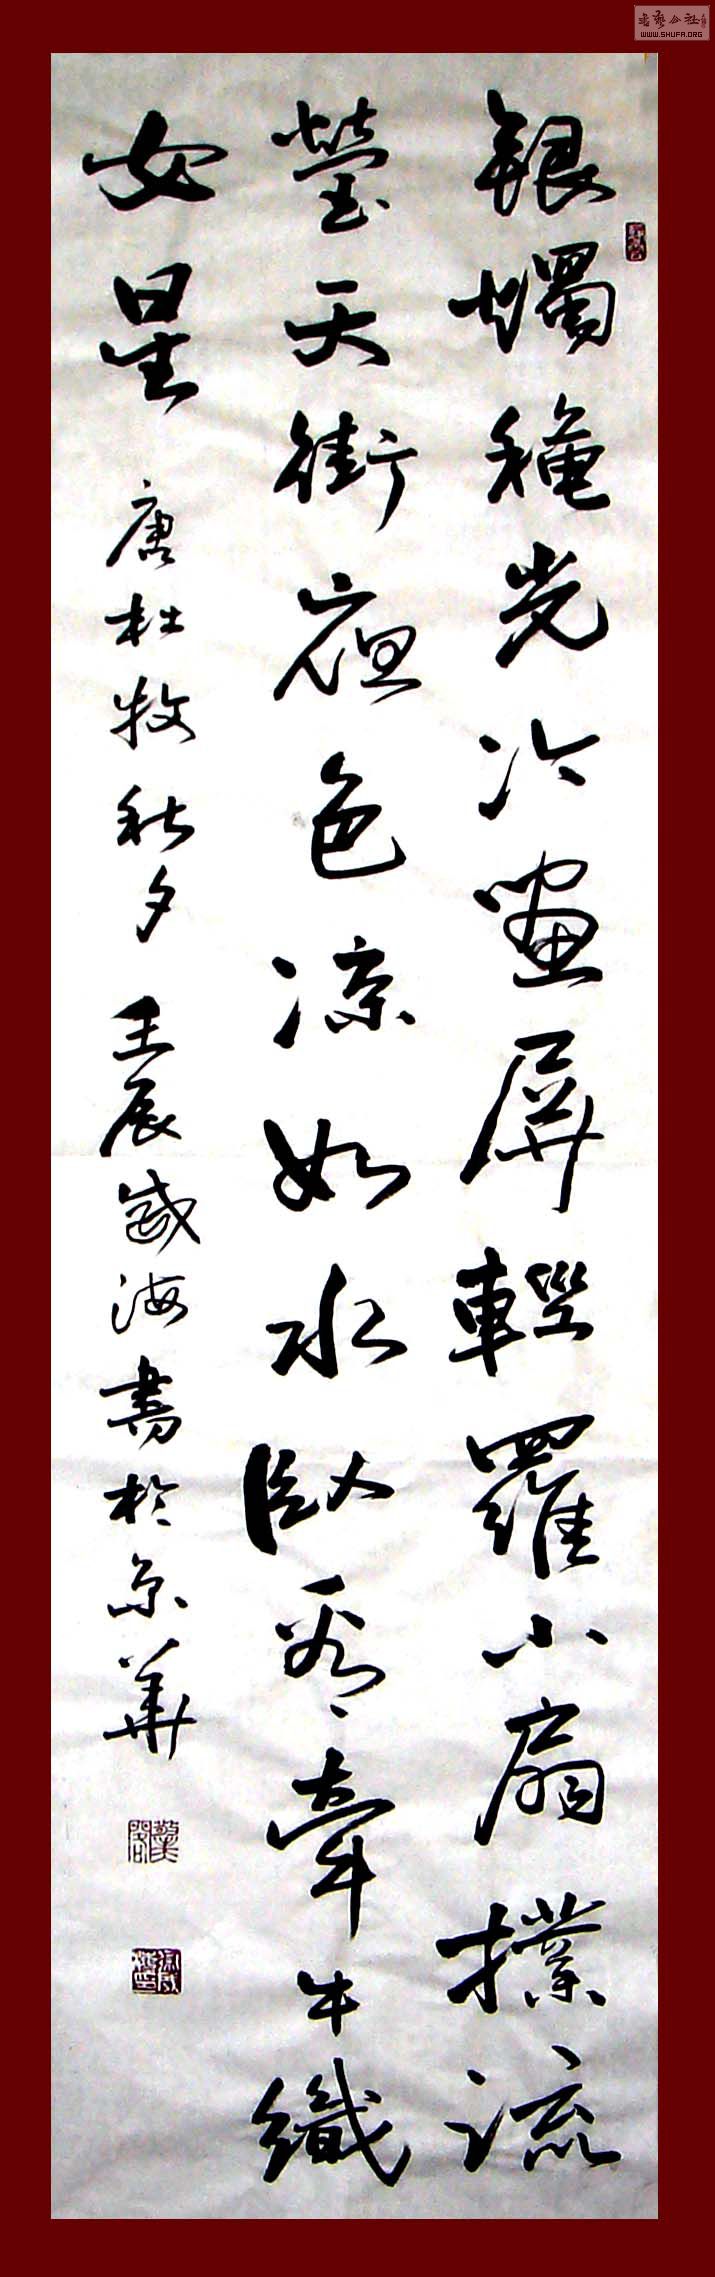 銀燭穐光冷畫屏輕羅小扇撲流
螢天街夜色涼如水臥看牽牛織
女星 唐杜牧秋夕 壬辰歲海書於京華
書藝公社
WWW.SHUFA.ORG